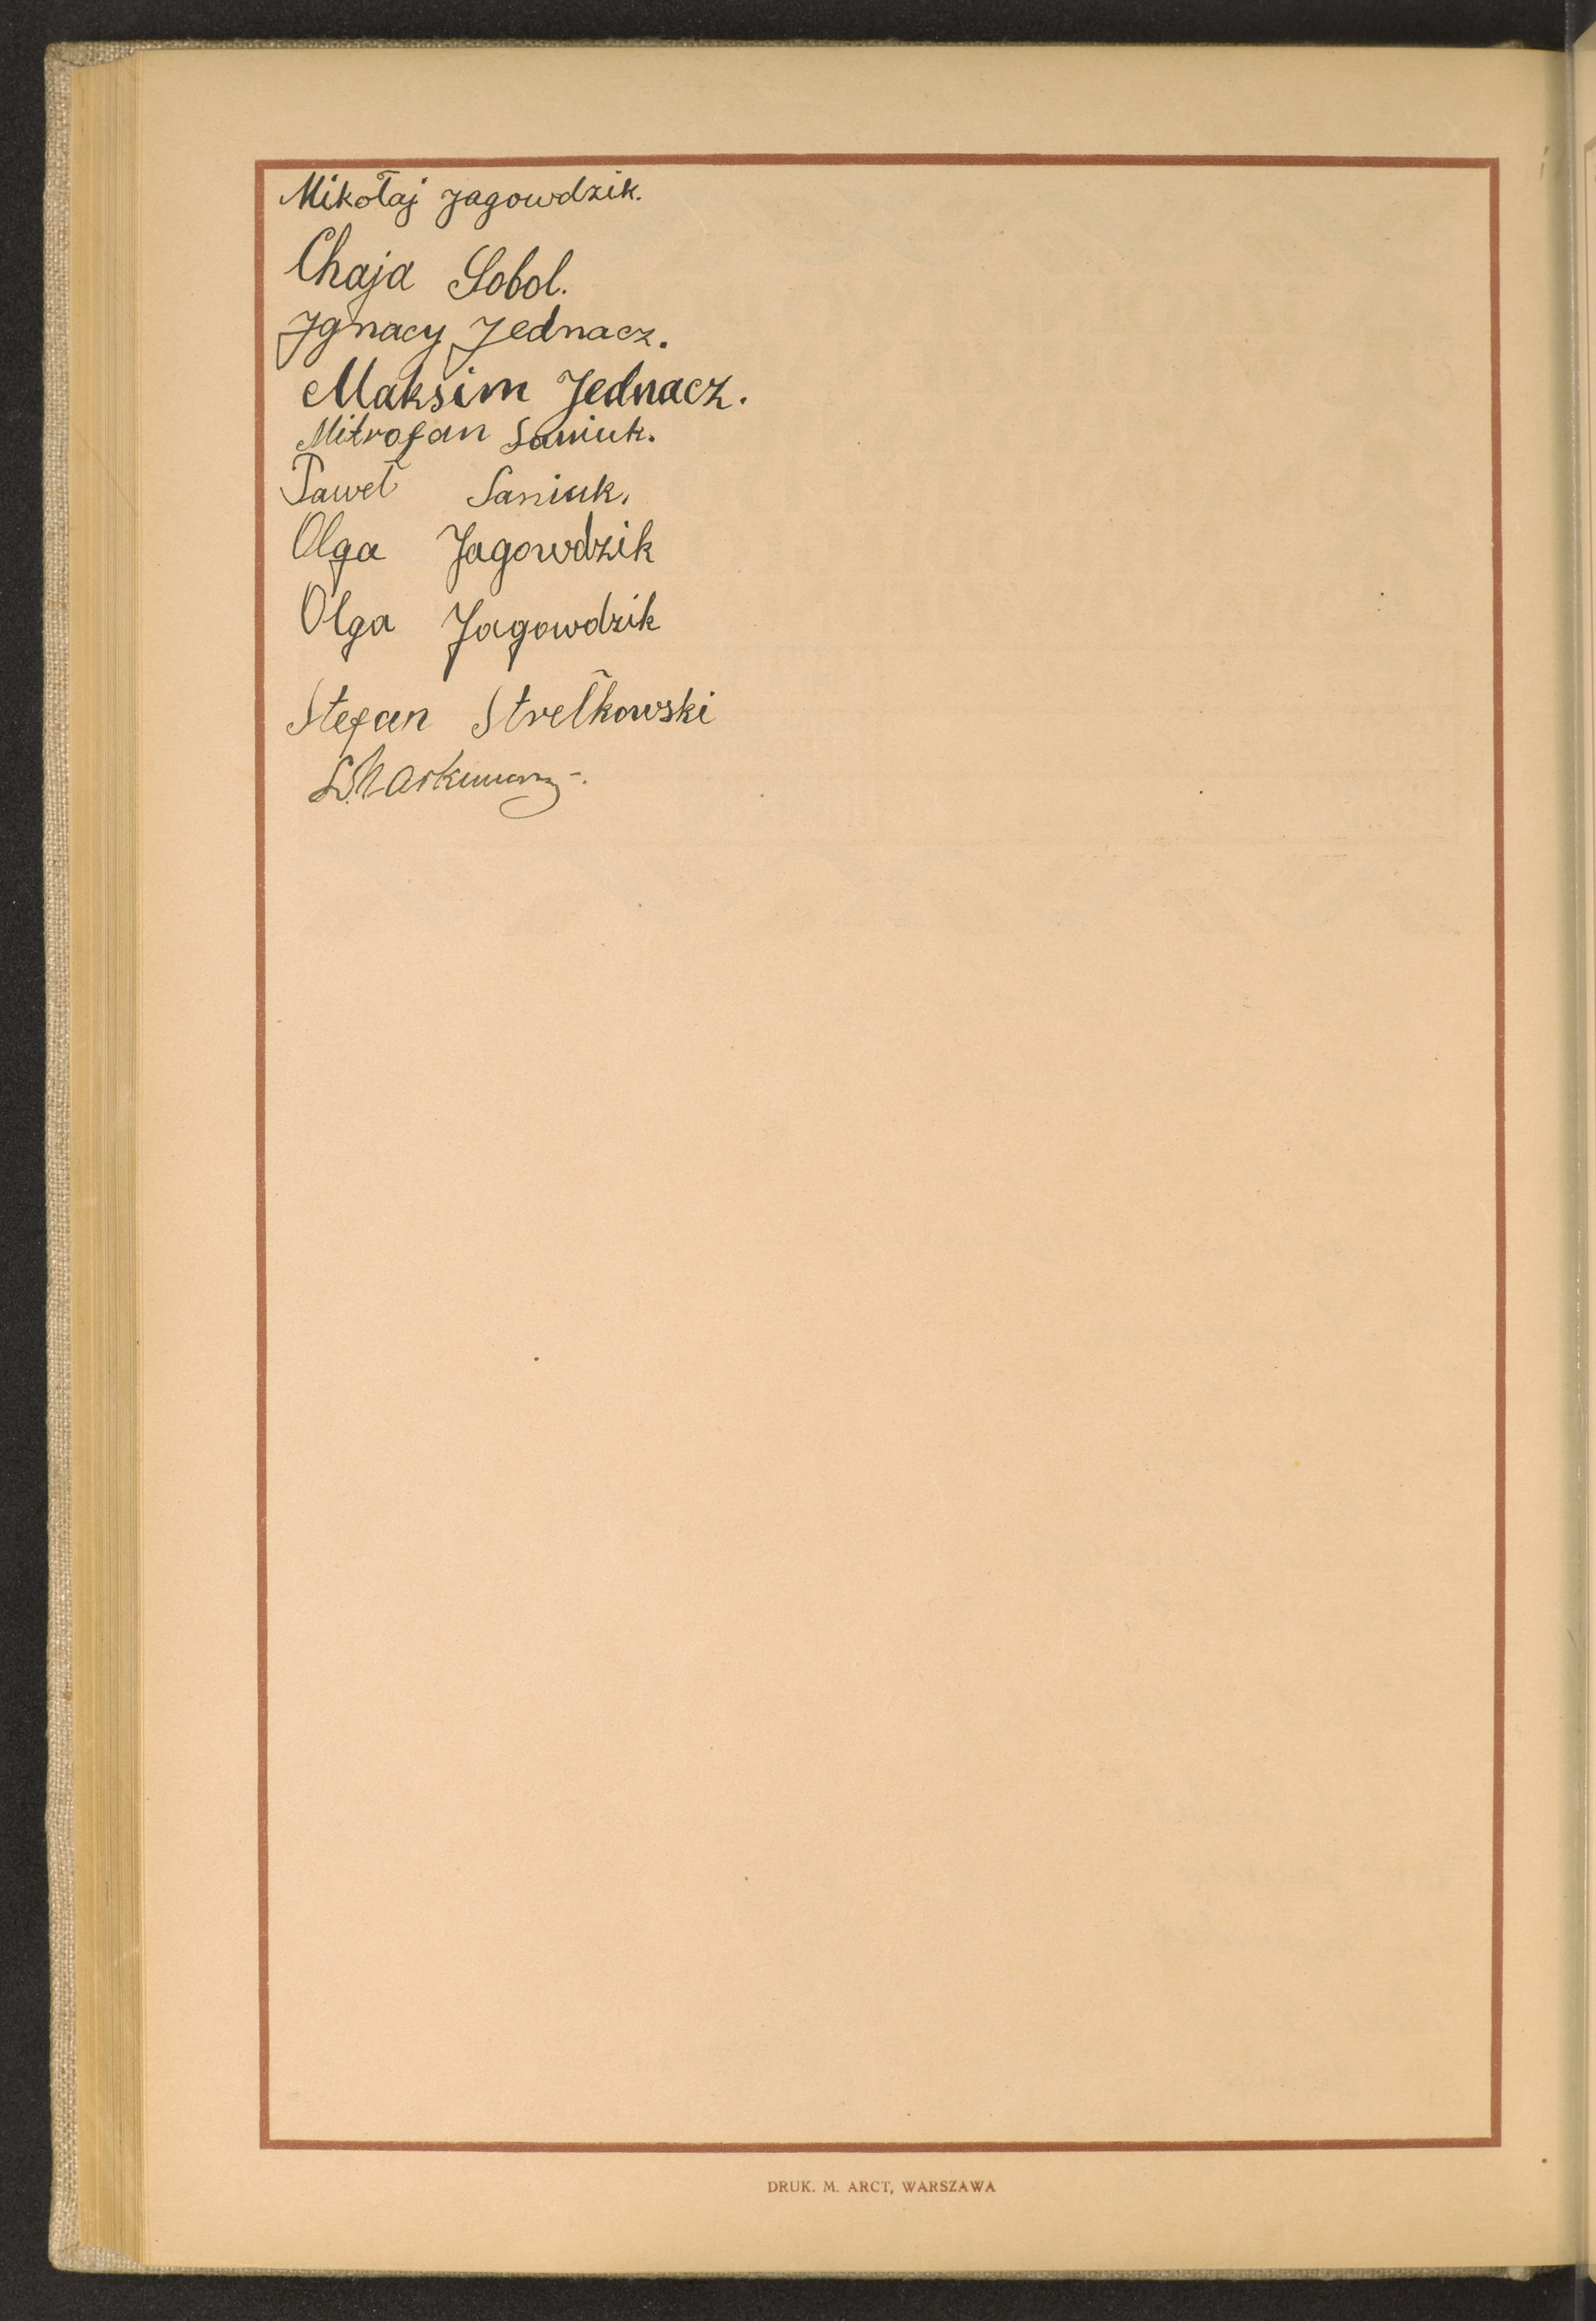 Mikołaj Jagowdzik.
Chaja Sobol.
Ignacy Jednacz.
Maksim Jednacz.
Mitrofan Saniuk.
Paweł Saniuk.
Olga Jagowdzik
Olga Jagowdzik
Stefan Strełkowski
DRUK. M. ARCT, WARSZAWA